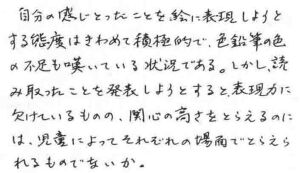 自分の感じとったことを絵に表現しようと
する態度はきわめて積極的で、色鉛筆の色
の不足も嘆いている状況である。しかし、読
み取ったことを発表しようとすると、表現力に
欠けているものの、関心の高さをとらえるのに
は、児童によってそれぞれの場面でとらえら
れるものでないか。